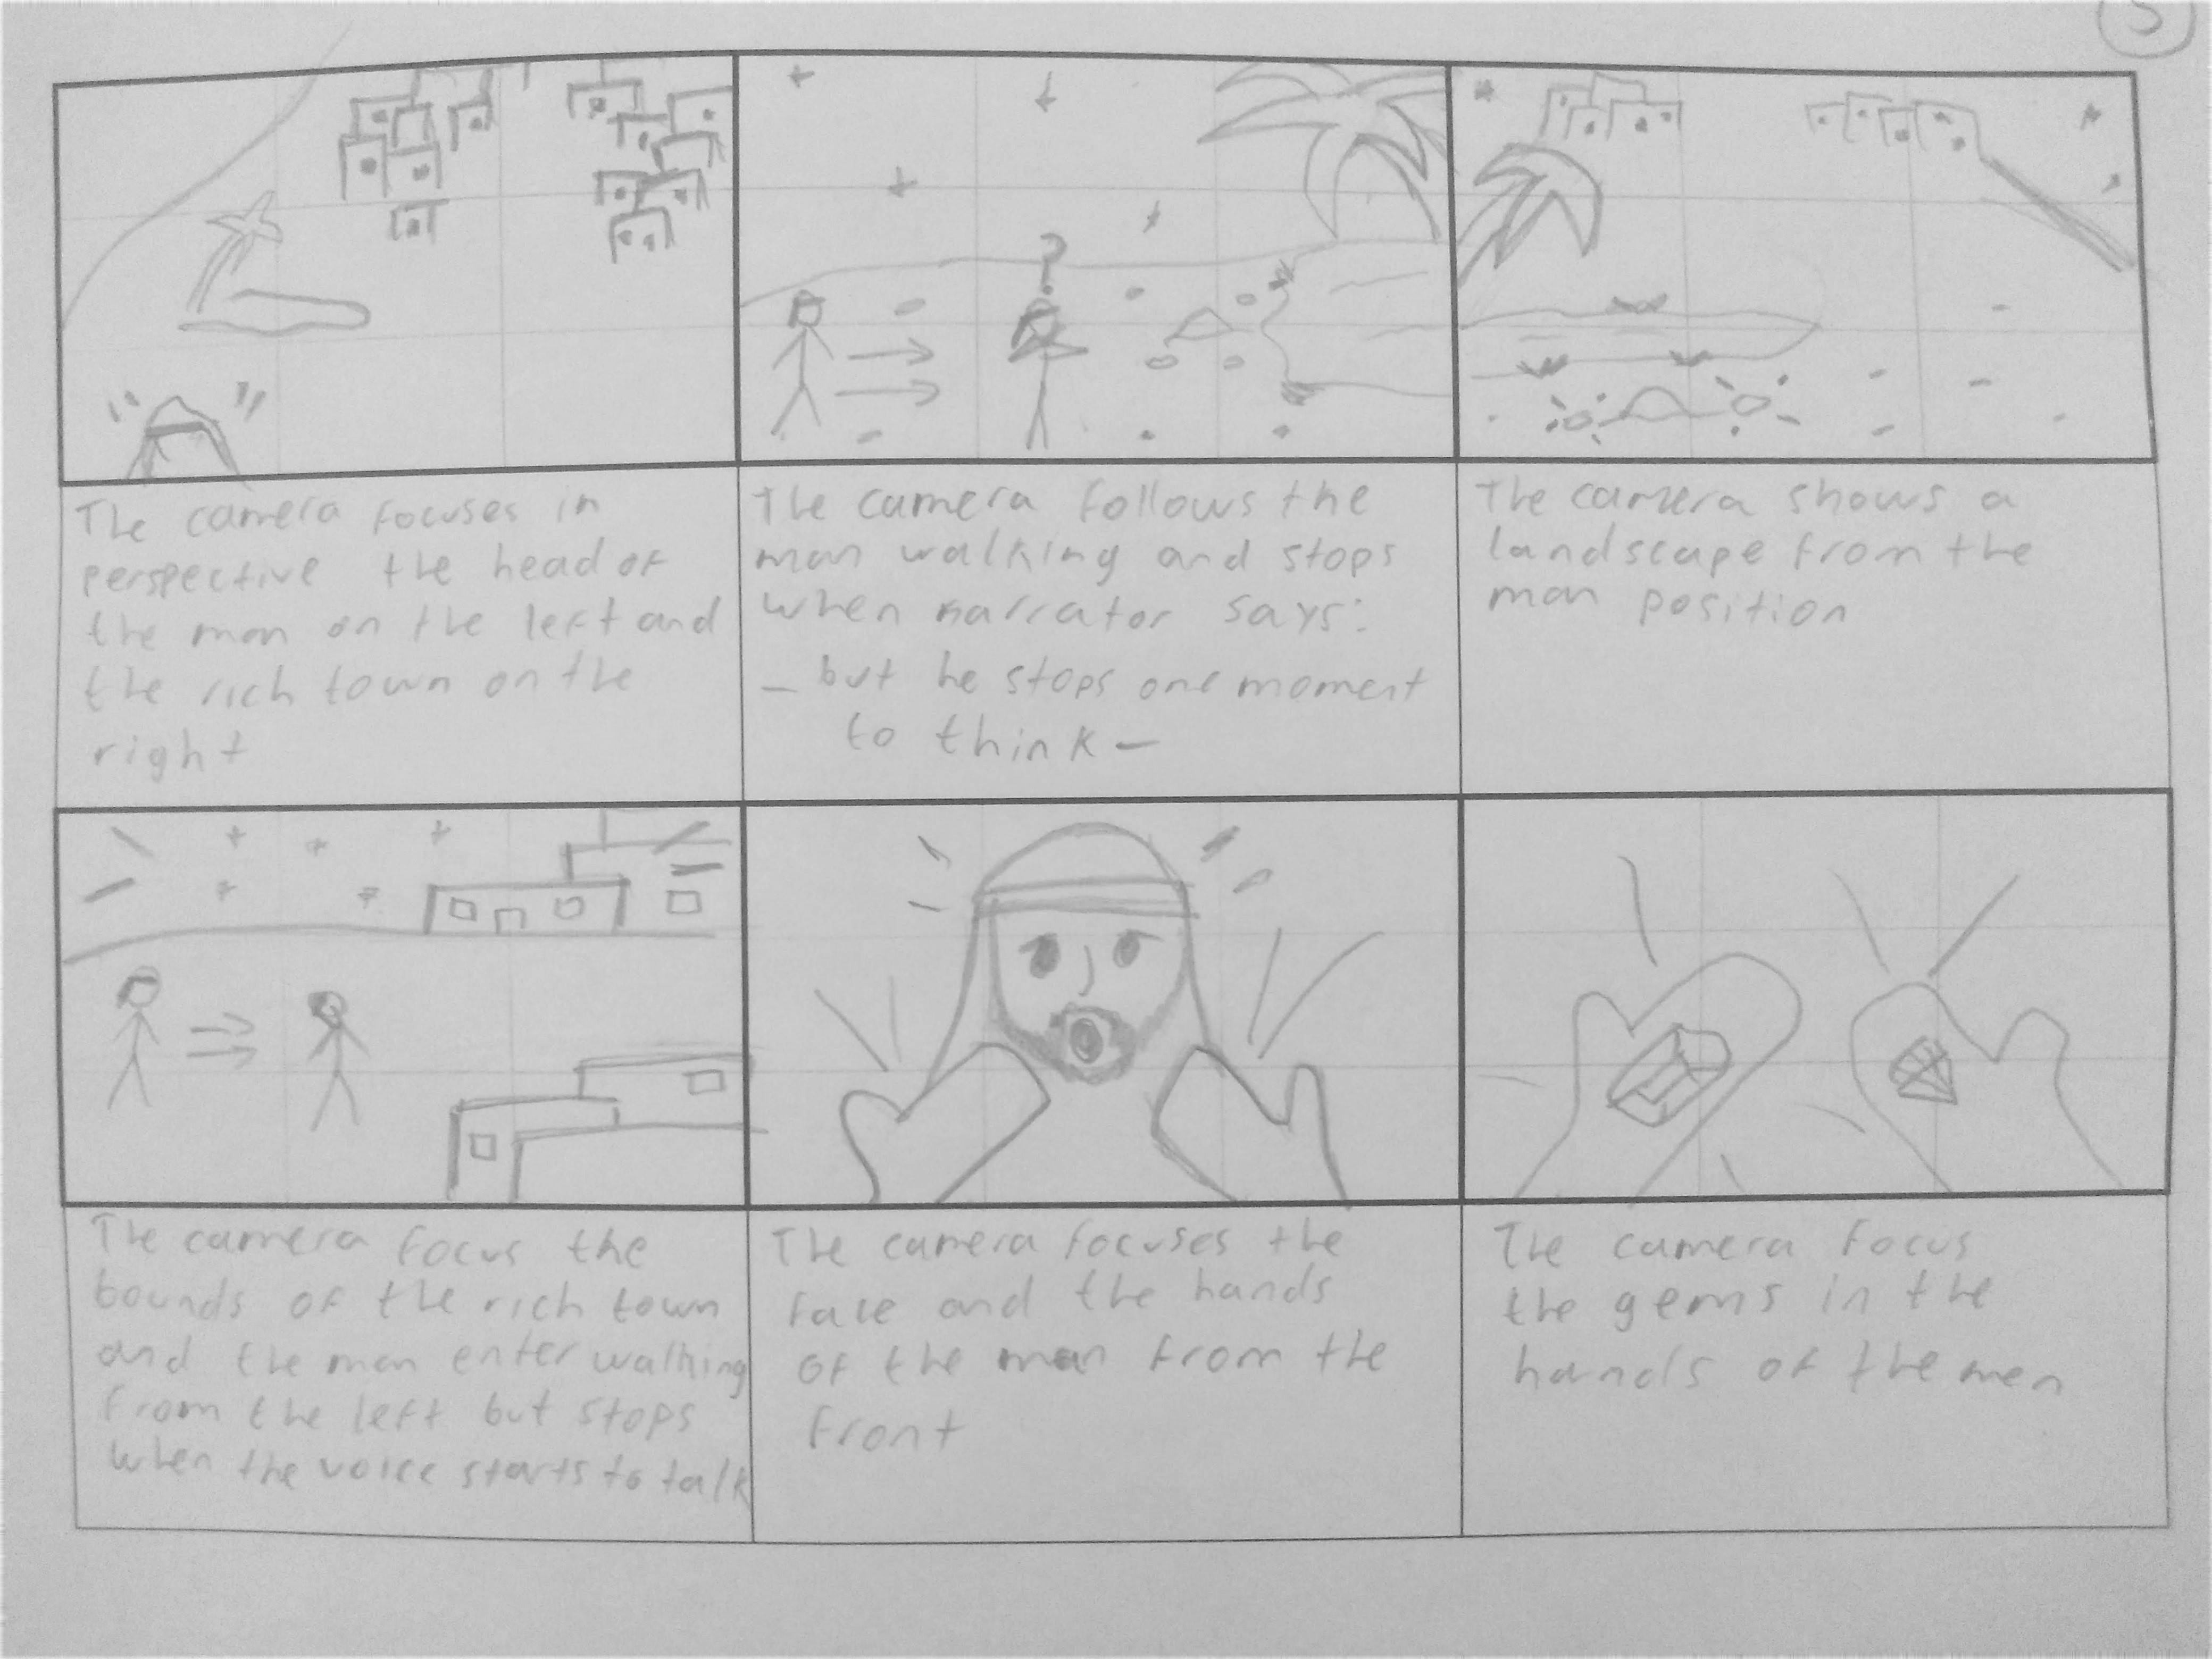 5
?
The camera focuses in
perspective the head of
the man on the left and
the rich town on the
right
The camera follows the
man walking and stops
when narrator says:
- but he stops one moment
to think -
The camera shows a
landscape from the
man position
The camera focus the
bounds of the rich town
and the man enter walking
from the left but stops
when the voice starts to talk
The camera focuses the
face and the hands
of the man from the
front
The camera focus
the gems in the
hands of the men